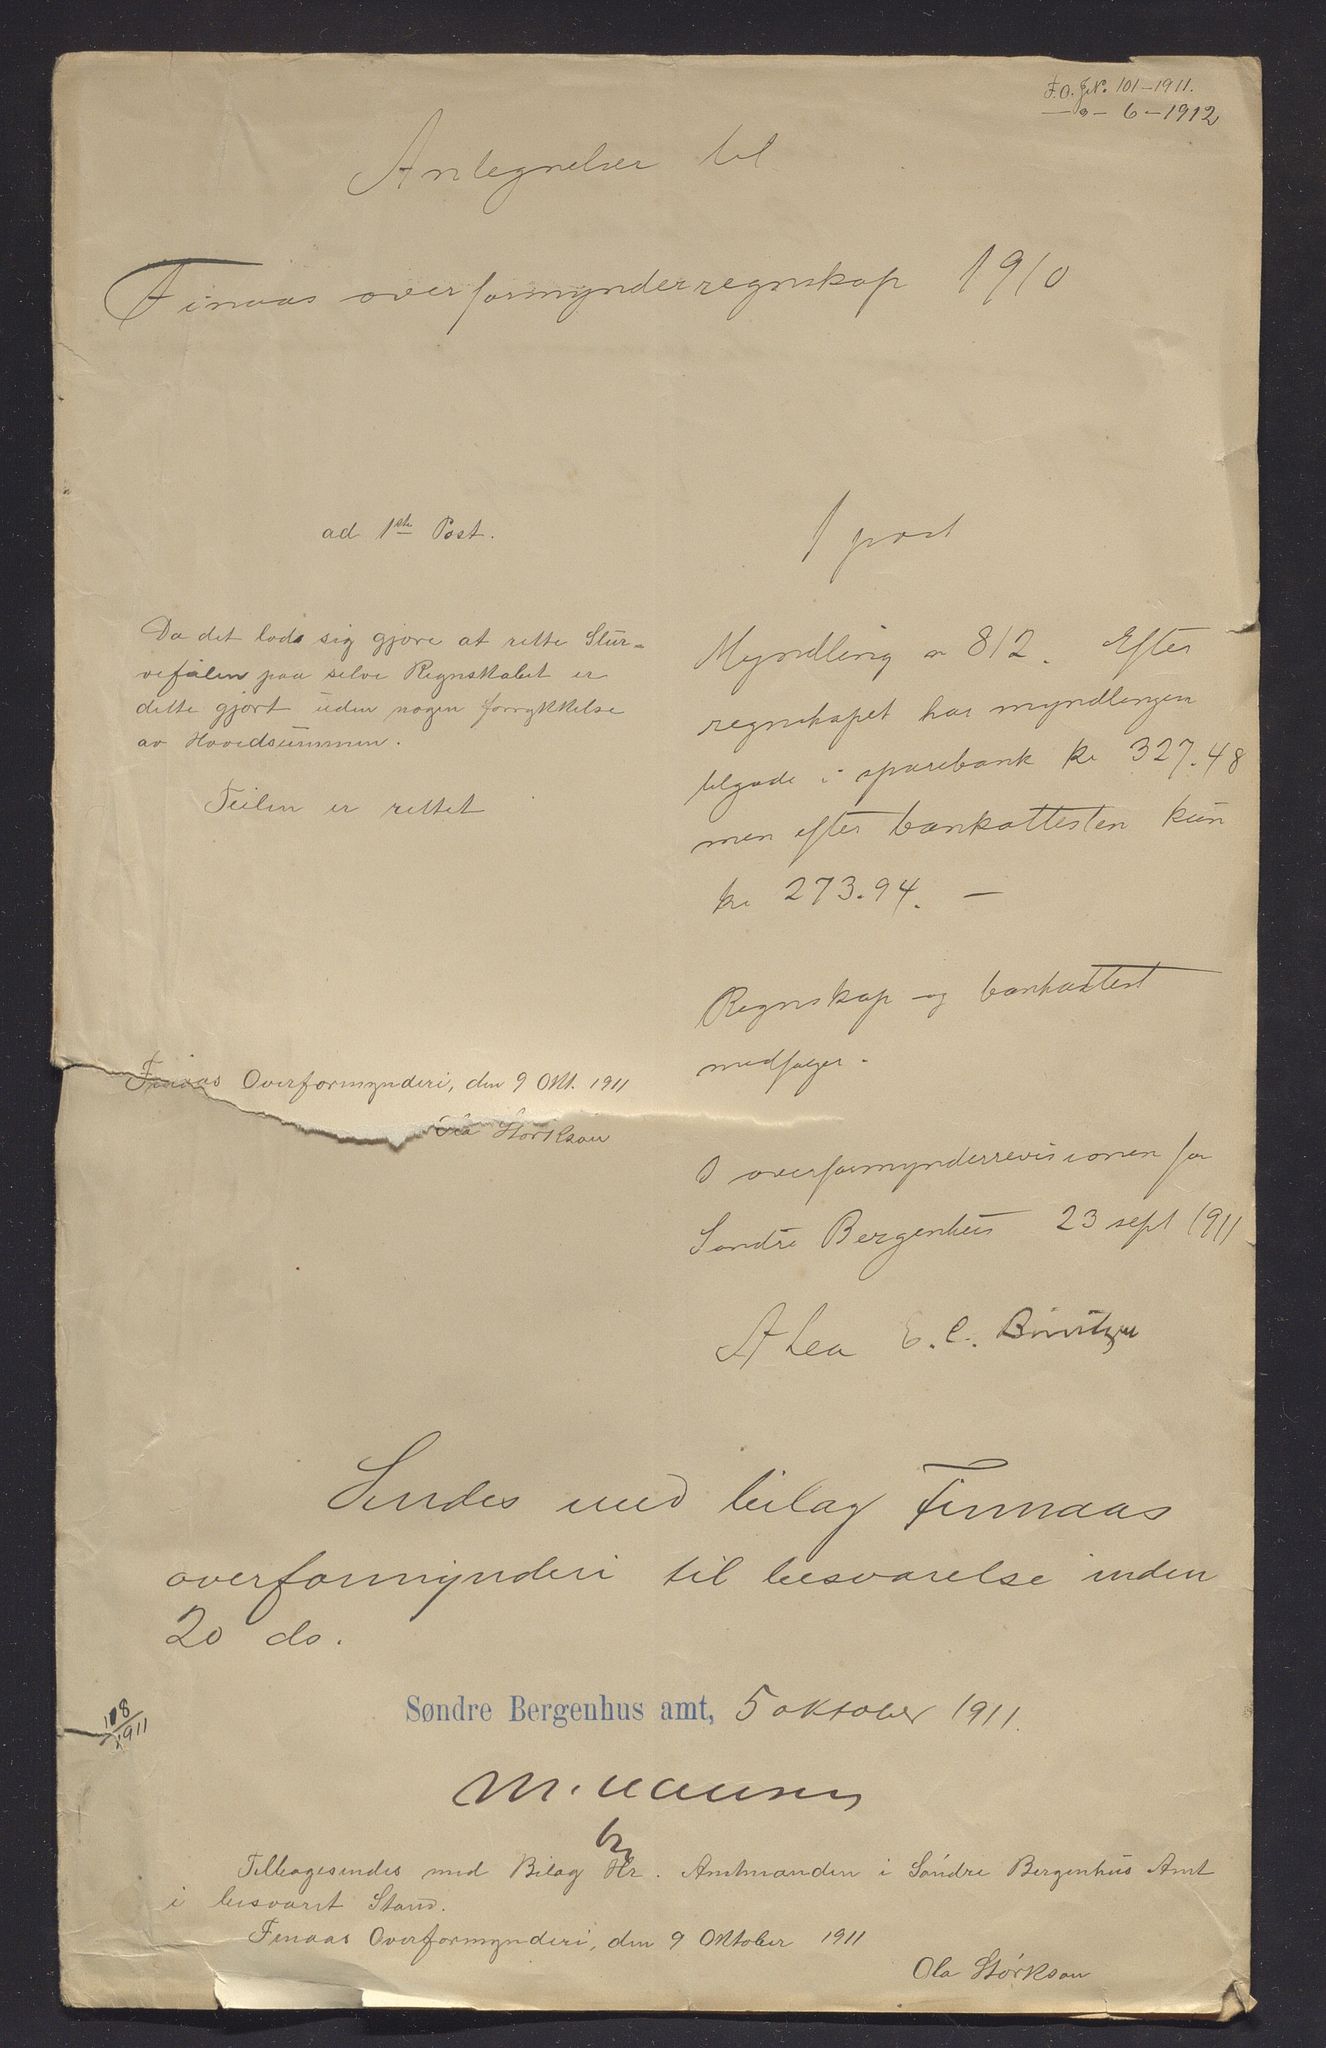 F.O. J.N. 101-1911.
—"— 6-1912
Antegnelser til
Finaas overformynderregnskap 1910
ad 1ste Post.
Da det lods sig gjøre at rette Skur-
vefeilen paa selve Regnskabet er
dette gjort uden nogen forrykkelse
av Hovedsummen.
Feilen er rettet
Finaas Overformynderi, den 9 Okt. 1911
Ola Størkson
1 post
Myndling n 812. Efter
regnskapet har myndlingen
tilgode i sparebank kr 327.48
men efter bankattesten kun
kr 273.94. —
Regnskap og bankattest
medfølger.
I overformynderrevisionen for
Søndre Bergenhus 23 sept 1911
A Lea E. C.
Sendes med bilag Finnaas
overformynderi til besvarelse inden
20 ds.
Søndre Bergenhus amt, 5 oktober 1911.
108/1911
Tilbagesendes med Bilag Hr. Amtmanden i Søndre Bergenhus Amt
i besvaret Stand.
Finaas Overformynderi, den 9 Oktober 1911
Ola Størkson